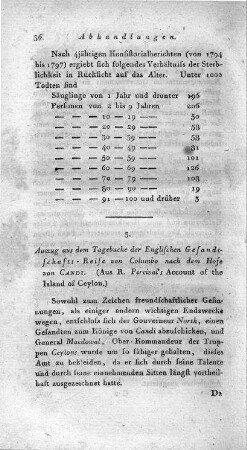 36 Abhandlungen.
Nach 4jährigen Konsistorialberichten (von 1794
bis 1797) ergiebt sich folgendes Verhältnis der Sterb-
lichkeit in Rücksicht auf das Alter. Unter 1000
Todten sind
Säuglinge von 1 Jahr und drunter 296
Personen von 2 bis 9 Jahren 206
— — — 10 — 19 — 50
— — — 20 — 29 — 58
— — — 30 — 39 — 58
— — — 40 — 49 — 81
— — — 50 — 59 — 101
— — — 60 — 69 — 126
— — — 70 — 79 — 58
— — — 80 — 90 — 19
— — — 91 — 100 und drüber 3
3.
Auszug aus dem Tagebuche der Englischen Gesandt-
schafts-Reise von Columbo nach dem Hofe
von CANDI. (Aus R. Percival's Account of the
Island of Ceylon.)
Sowohl zum Zeichen freundschaftlicher Gesin-
nungen, als einiger andern wichtigen Endzwecke
wegen, entschloss sich der Gouverneur North, einen
Gesandten zum Könige von Candi abzuschicken, und
General Macdowal, Ober-Kommandeur der Trup-
pen Ceylons wurde um so fähiger gehalten, dieses
Amt zu bekleiden, da er sich durch seine Talente
und durch seine einnehmenden Sitten längst vortheil-
haft ausgezeichnet hatte.
Da